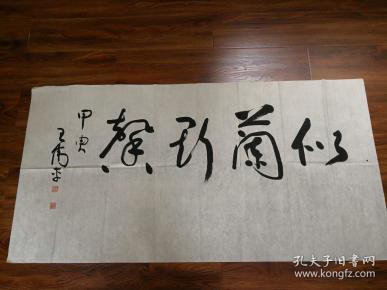 似蘭斯馨
甲申
王偉平
孔夫子旧书网
www.kongfz.com